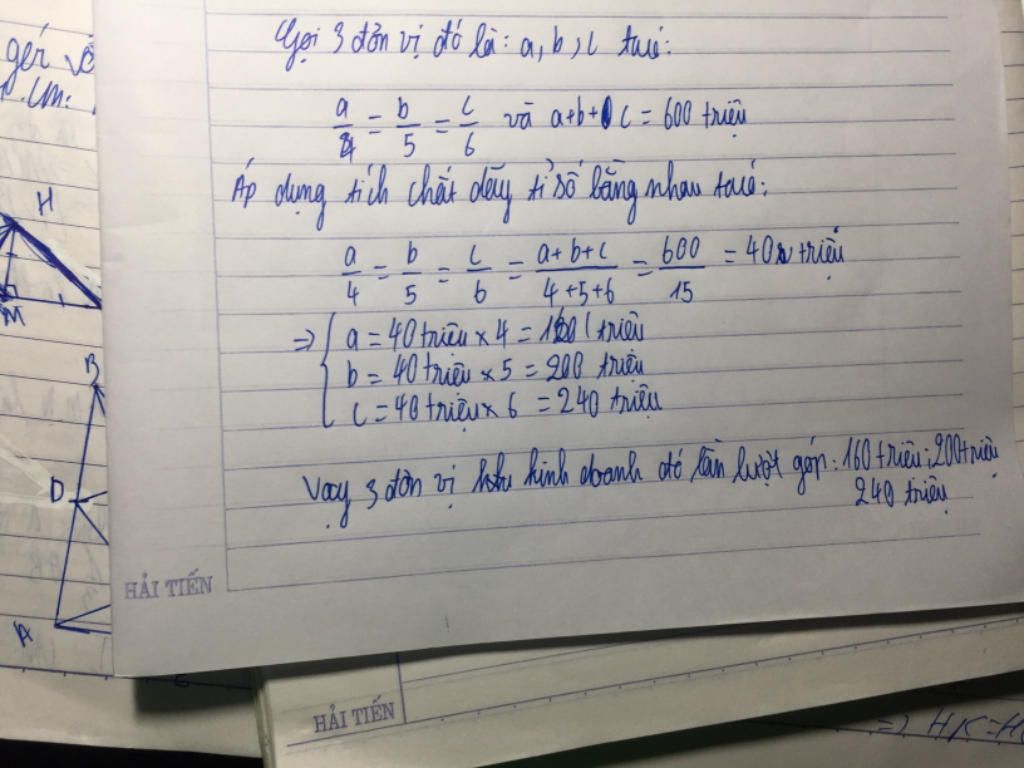 gér
H
M
B
D
A
Gọi 3 đơn vị đó là: a, b, c taué:
a/4 = b/5 = c/6 và a+b+c = 600 triệu
Áp dụng tích chất dãy tỉ số bằng nhau taué:
a/4 = b/5 = c/6 = a+b+c/4+5+6 = 600/15 = 40 triệu
=> { a = 40 triệu x 4 = 160 triệu
b = 40 triệu x 5 = 200 triệu
c = 40 triệu x 6 = 240 triệu
Vạy 3 đơn vị kinh doanh đó lần lượt góp: 160 triệu; 200 triệu
240 triệu
HẢI TIẾN
HẢI TIẾN
=> HK = H